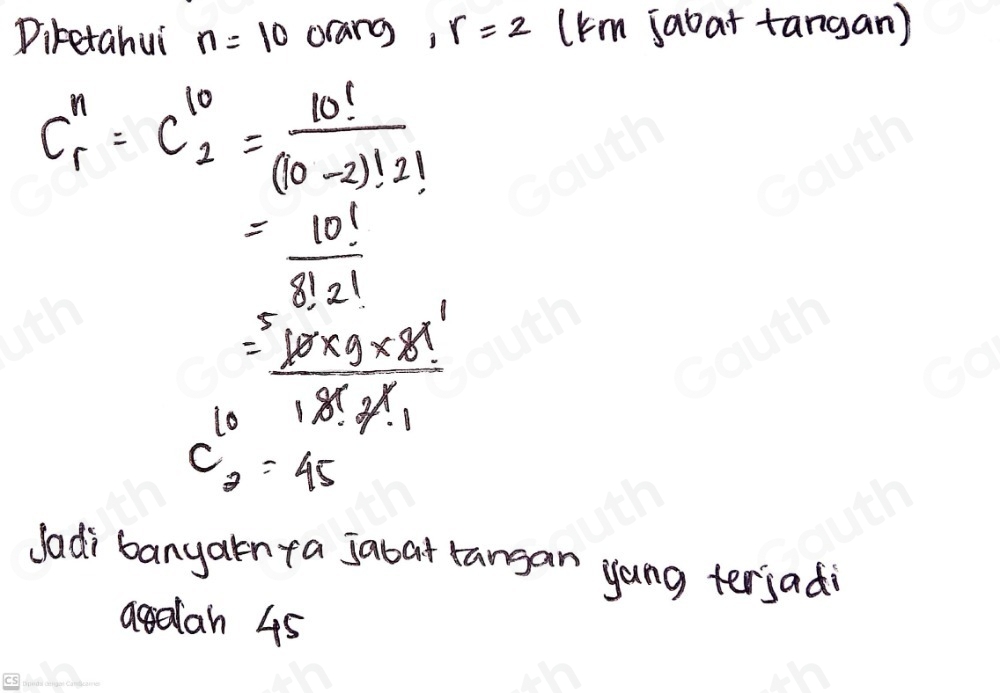 Diketahui n = 10 orang , r = 2 (km jabat tangan)
C^n_r = C^10_2 = 10! / (10 - 2)! 2!
= 10! / 8! 2!
= 10 x 9 x 8! / 8! 2! 5 1 1 1
C^10_2 = 45
Jadi banyaknya jabat tangan yang terjadi
adalah 45
CS
Gauth